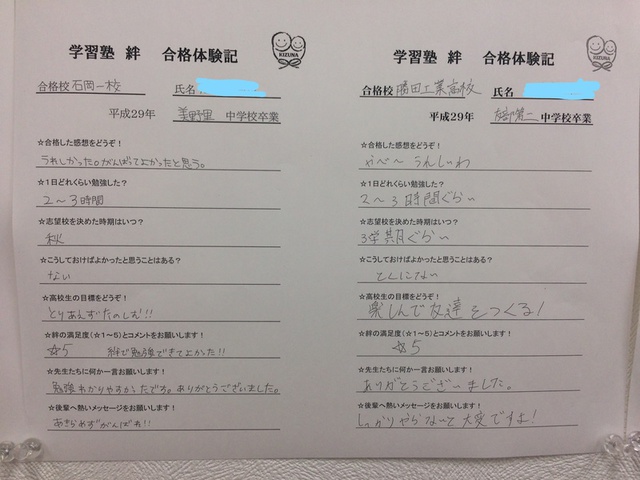 学習塾 絆 合格体験記
KIZUNA
合格校 石岡一校
氏名
平成29年 美野里 中学校卒業
☆合格した感想をどうぞ!
うれしかった。がんばってよかったと思う。
☆1日どれくらい勉強した?
2～3時間
☆志望校を決めた時期はいつ?
秋
☆こうしておけばよかったと思うことはある?
ない
☆高校生の目標をどうぞ!
とりあえずたのしむ!!
☆絆の満足度(☆1～5)とコメントをお願いします!
☆5 絆で勉強できてよかった!!
☆先生たちに何か一言お願いします!
勉強わかりやすかったです。ありがとうございました。
☆後輩へ熱いメッセージをお願いします!
あきらめずがんばれ!!
学習塾 絆 合格体験記
KIZUNA
合格校 勝田工業高校
氏名
平成29年 第二 中学校卒業
☆合格した感想をどうぞ!
やべ～ うれしいわ
☆1日どれくらい勉強した?
2～3時間ぐらい
☆志望校を決めた時期はいつ?
3学期ぐらい
☆こうしておけばよかったと思うことはある?
とくにない
☆高校生の目標をどうぞ!
楽しんで友達をつくる!
☆絆の満足度(☆1～5)とコメントをお願いします!
☆5
☆先生たちに何か一言お願いします!
ありがとうございました。
☆後輩へ熱いメッセージをお願いします!
しっかりやらないと大変ですよ!